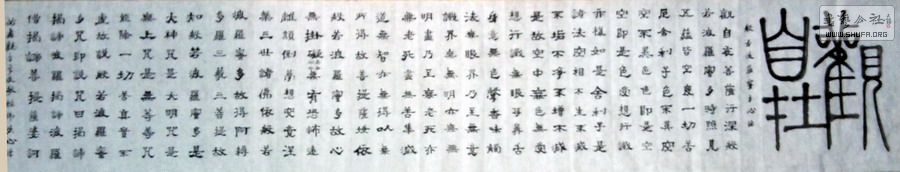 觀
自在
般若波羅蜜多心經
觀自在菩薩行深般
若波羅蜜多時照見
五蘊皆空度一切苦
厄舍利子色不異空
空不異色色即是空
空即是色受想行識
亦復如是舍利子是
諸法空相不生不滅
不垢不淨不增不減
是故空中無色無受
想行識無眼耳鼻舌
身意無色聲香味觸
法無眼界乃至無意
識界無無明亦無無
明盡乃至無老死亦
無老死盡無苦集滅
道無智亦無得以無
所得故菩提薩埵依
般若波羅蜜多故心
無掛礙無掛礙故無有恐怖遠
離顛倒夢想究竟涅
槃三世諸佛依般若
波羅蜜多故得阿耨
多羅三藐三菩提故
知般若波羅蜜多是
大神咒是大明咒是
無上咒是無等等咒
能除一切苦真實不
虛故說般若波羅蜜
多咒即說咒曰揭諦
揭諦波羅揭諦波羅
僧揭諦菩提薩婆訶
WWW.SHUFA.ORG